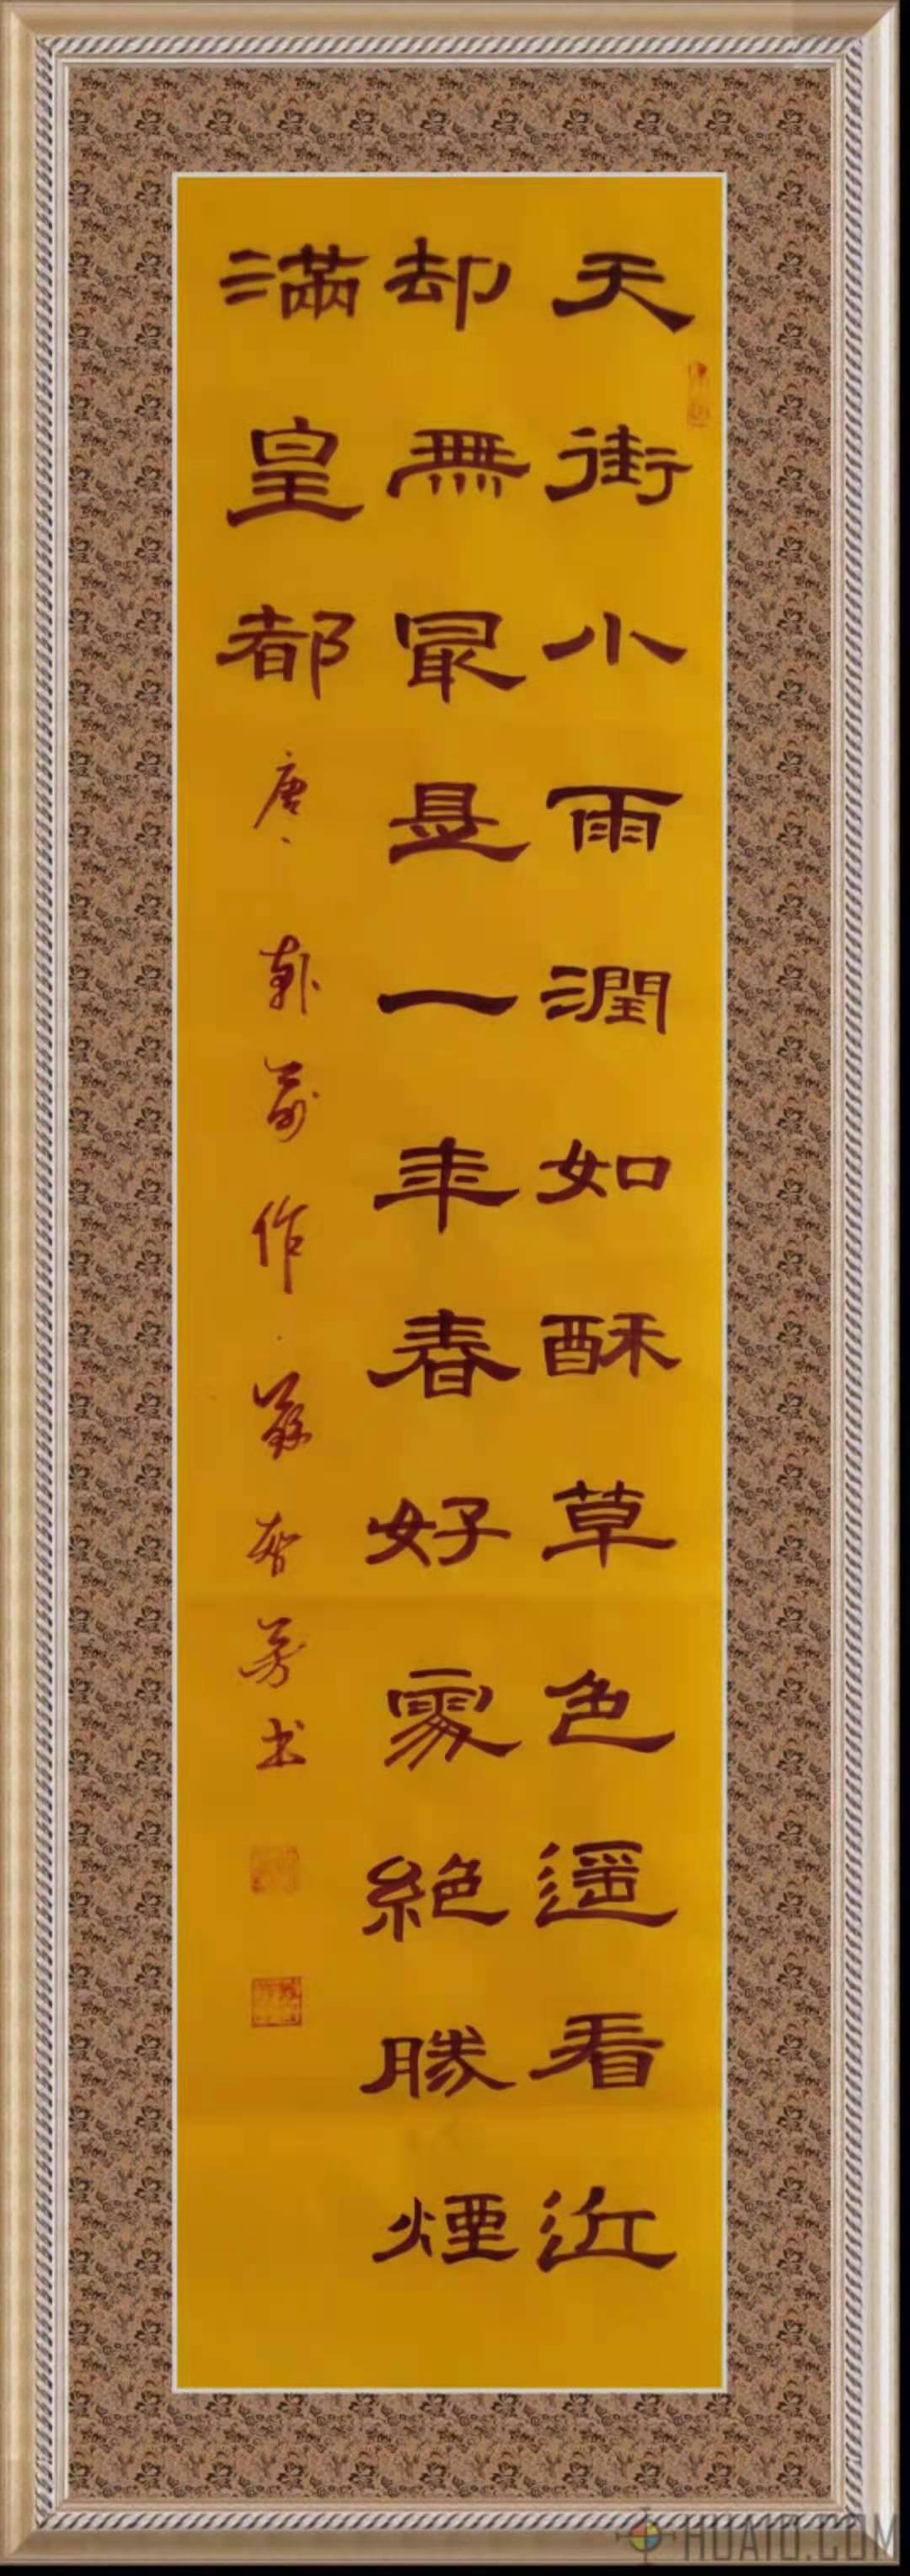 天街小雨潤如酥草色遥看近
却無最是一年春好處絶勝煙
滿皇都 唐 韩愈作 蘇智芳书
HUAIO.COM